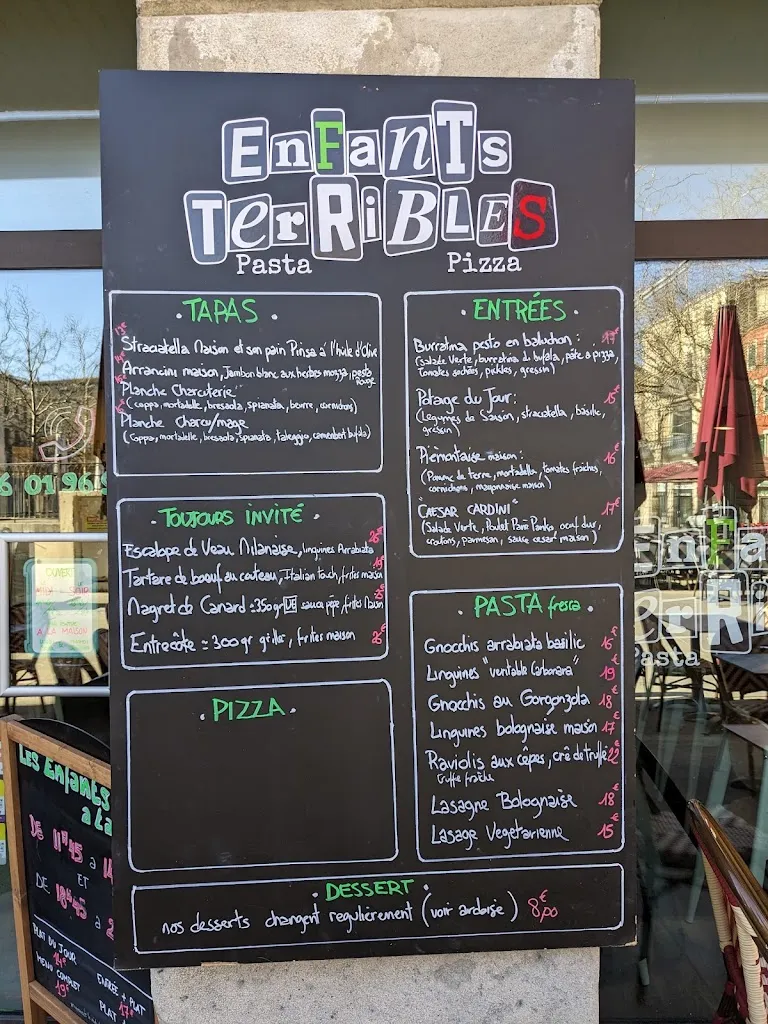 EnFanTs
TerRiBLES
Pasta Pizza
TAPAS
Straciatella Maison et son pain Pinsa à l'huile d'Olive
Arrancini maison, Jambon blanc aux herbes mozza, pesto
Rouge
Planche Charcuterie
(coppa, mortadelle, bresaola, spianata, beurre, cornichons)
Planche Charcu/mage
(Coppa, mortadelle, bresaola, spianata, taleggio, camembert bufala)
TOUJOURS INVITÉ
Escalope de Veau Milanaise, linguines Arrabiata
Tartare de boeuf au couteau, Italian touch, frites maison
Magret de Canard ≃350gr sauce pépé, frites Maison
Entrecôte ≃ 300gr grillée, frites maison
PIZZA
ENTRÉES
Burratina pesto en baluchon : 17€
(Salade Verte, burratina di bufala, pâte à pizza,
Tomates séchées, pickles, gressin)
Potage du Jour : 15€
(Légumes de Saison, straciatella, basilic,
gressin)
Piémontaise maison : 16€
(Pomme de terre, mortadella, tomates fraîches,
cornichons, mayonnaise maison)
"CAESAR CARDINI" 17€
(Salade Verte, Poulet Pané Panko, oeuf dur,
croutons, parmesan, sauce cesar maison)
PASTA fresca
Gnocchis arrabiata basilic 16€
Linguines "veritable Carbonara" 19€
Gnocchis au Gorgonzola 18€
Linguines bolognaise maison 17€
Raviolis aux cêpes, crê de truffe 22€
truffe fraîche
Lasagne Bolognaise 18€
Lasage Vegetarienne 15€
DESSERT
nos desserts changent regulièrement (voir ardoise) 8€,00
OUVERT
A LA MAISON
6 01 96 9
EnFa
TerR
Pasta
Les Enfants
à la
DE 11H45 à 14
ET
DE 18H45 à 2
PLAT DU JOUR
14€
MENU COMPLET
19€
ENTRÉE + PLAT
17€
PLAT